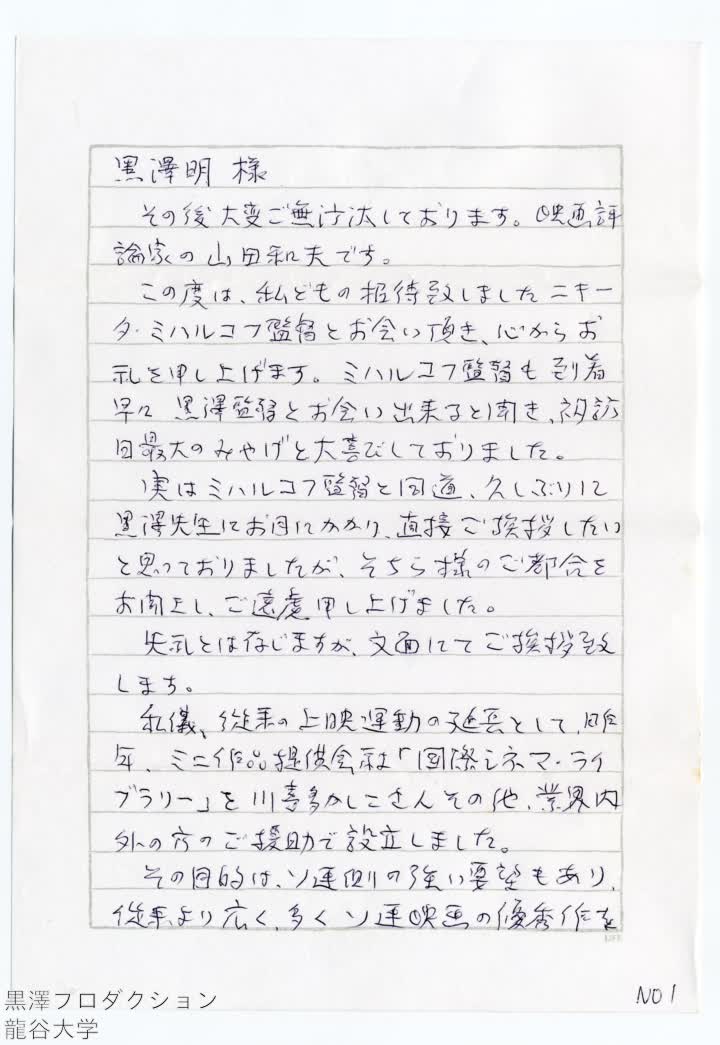 黒澤明 様
その後大変ご無沙汰しております。映画評
論家の山田和夫です。
この度は、私どもの招待致しましたニキー
タ・ミハルコフ監督とお会い頂き、心からお
礼を申し上げます。ミハルコフ監督も到着
早々 黒澤監督とお会い出来ると聞き、初訪
日最大のみやげと大喜びしておりました。
実はミハルコフ監督と同道、久しぶりに
黒澤先生にお目にかかり、直接ご挨拶したい
と思っておりましたが、そちら様のご都合を
お聞きし、ご遠慮申し上げました。
失礼とは存じますが、文面にてご挨拶致
します。
私儀、従来の上映運動の延長として、昨
年、ミニ作品提供会社「国際シネマ・ライ
ブラリー」を川喜多かしこさんその他、業界内
外の方のご援助で設立しました。
その目的は、ソ連側の強い要望もあり、
従来より広く、多くソ連映画の優秀作を
NO 1
黒澤プロダクション
龍谷大学